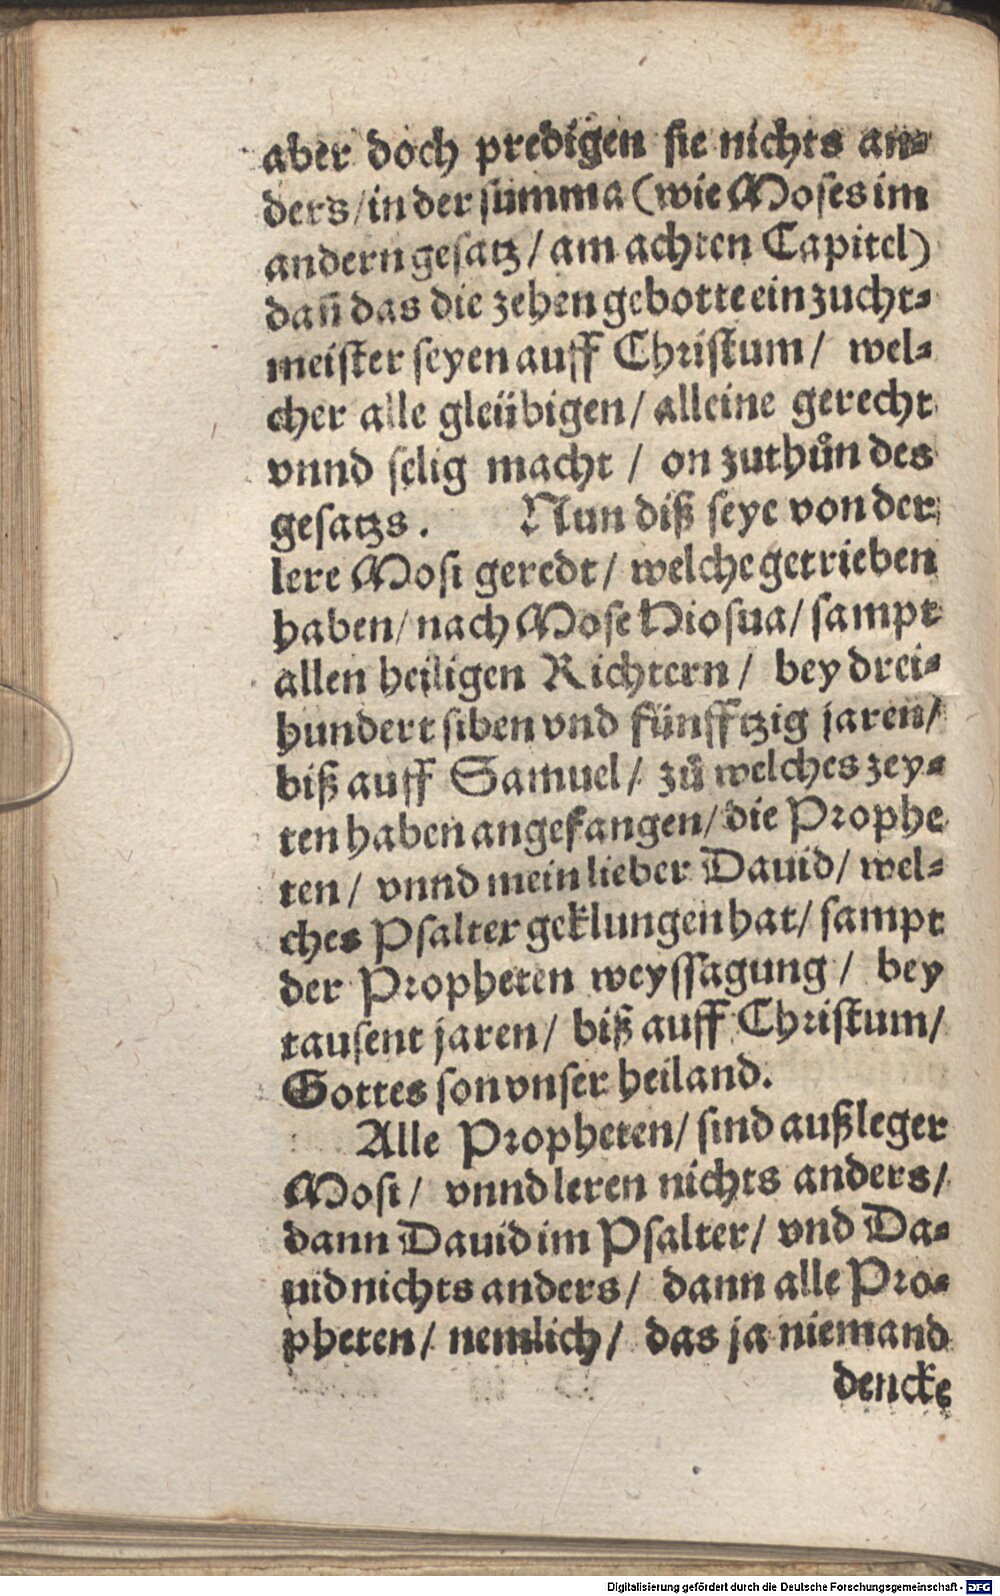 aber doch predigen sie nichts an⸗
ders/in der summa (wie Moses im
andern gesatz/ am achten Capitel)
dañ das die zehen gebotte ein zucht⸗
meister seyen auff Christum/ wel⸗
cher alle gleübigen/ alleine gerecht
vnnd selig macht / on zuthůn des
gesatzs. Nun diß seye von der
lere Mosi geredt/ welche getrieben
haben/ nach Mose Hiosua/ sampt
allen heiligen Richtern/ bey drei⸗
hundert siben vnd fünfftzig jaren/
biß auff Samuel/ zů welches zey⸗
ten haben angefangen/ die Prophe
ten/ vnnd mein lieber Dauid/ wel⸗
ches Psalter geklungen hat/ sampt
der Propheten weyssagung/ bey
tausent jaren/ biß auff Christum/
Gottes son vnser heiland.
Alle Propheten/ sind außleger
Mosi/ vnnd leren nichts anders/
dann Dauid im Psalter/ vnd Da⸗
uid nichts anders/ dann alle Pro⸗
pheten/ nemlich/ das ja niemand
dencke
Digitalisierung gefördert durch die Deutsche Forschungsgemeinschaft - DFG